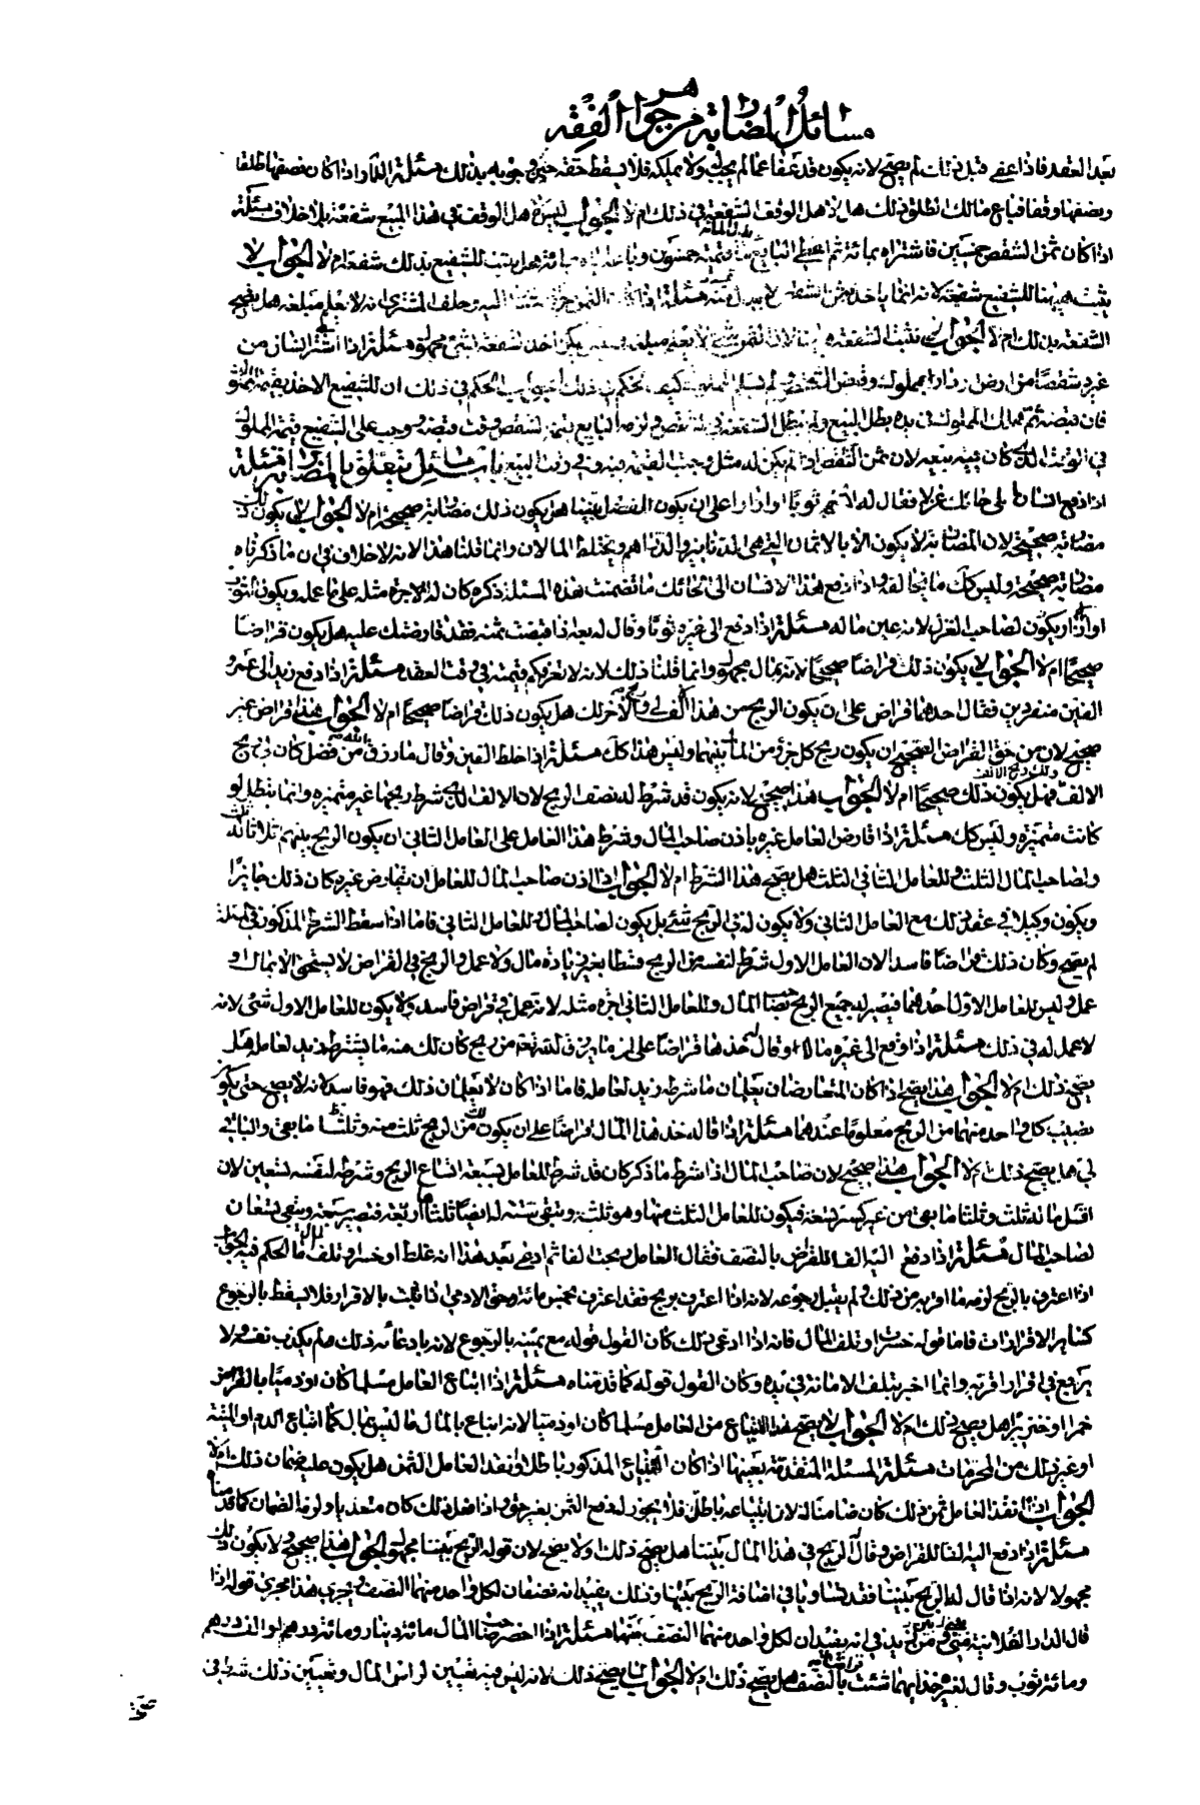 مسائل المضاربة من جواهر الفقه
بعد العقد فاذا عفى قبل ذلك لم يصح لانه يكون قد عفا عما لم يجب ولا يملكه فلا يسقط حقه حين وجوبه بذلك مسئلة الدار اذا كان نصفها طلقا
ونصفها وقفا فباع مالك الطلق ذلك هل لاهل الوقف الشفعة في ذلك ام لا الجواب ليس لاهل الوقف في هذا المبيع شفعة بلا خلاف مسئلة
اذا كان ثمن الشقص خمسين فاشتراه بمائة ثم اعطى البايع بدل المائة ما قيمته خمسون وباعه بمائة هل يثبت للشفيع بذلك شفعة ام لا الجواب لا
يثبت هيهنا للشفيع شفعة لانه انما يأخذ بثمن الشقص لا ببدل ثمنه مسئلة اذا كان الثمن وحلف المشترى انه لا يعلم مبلغه هل يصح
الشفعة بذلك ام لا الجواب لا تثبت الشفعة هيهنا لان الثمن لا يعلم مبلغه يمكن اخذ الشفعة بثمن مجهول مسئلة اذا اشترى انسان من
غيره شقصا من ارض او دار بمملوك وقبض الشقص ولم يسلم المملوك كيف الحكم في ذلك الجواب الحكم في ذلك ان للشفيع الاخذ بقيمة المملوك
فان قبضه ثم هلك المملوك في يده بطل البيع ولم تبطل الشفعة في الشقص ولزمه للبايع قيمة الشقص وقت قبضه ووجب على الشفيع قيمة المملوك
في الوقت الذي كان فيه بيعه لان ثمن الشقص اذا لم يكن له مثل وجبت القيمة فيه وفي وقت البيع باب مسائل يتعلق بالمضاربة مسئلة
اذا دفع انسان الى حائك غزلا فقال له انسجه ثوبا او ازارا على ان يكون الفضل بيننا هل يكون ذلك مضاربة صحيحة ام لا الجواب لا يكون ذلك
مضاربة صحيحة لان المضاربة لا يكون الا بالاثمان التي هي الدنانير والدراهم ويختلط المالان وانما قلنا هذا لانه لا خلاف في ان ما ذكرناه
مضاربة صحيحة وليس كك ما يخالفه واذا دفع هذا الانسان الى الحائك ما تضمنت هذه المسئلة ذكره كان له الاجرة مثله على ما عمله ويكون الثوب
او الازار يكون لصاحب الغزل لانه عين ماله مسئلة اذا دفع الى غيره ثوبا وقال له بعه فاذا قبضت ثمنه فقد قارضتك عليه هل يكون قراضا
صحيحا ام لا الجواب لا يكون ذلك قراضا صحيحا لانه بمال مجهول وانما قلنا ذلك لانه لا تعرفكم قيمته في وقت العقد مسئلة اذا دفع زيد الى عمرو
الفين منفردين فقال احدهما قراض على ان يكون الربح من هذا الالف لي وربح الآخر لك هل يكون ذلك قراضا صحيحا ام لا الجواب هذا قراض غير
صحيح لان من حق القراض الصحيح ان يكون ربح كل جزء من المال بينهما وليس هذا كك مسئلة اذا خلط الفين وقال ما رزق الله من فضل كان لي ربح
الالف ولك ربح الالف فهل يكون ذلك صحيحا ام لا الجواب هذا صحيح لانه يكون قد شرط له نصف الربح لان الالف الذي شرط ربحها غير متميزة وانما تبطل لو
كانت متميزة وليس كك مسئلة اذا قارض العامل غيره باذن صاحب المال وشرط هذا العامل على العامل الثاني ان يكون الربح بينهم ثلاثا له الثلث
ولصاحب المال الثلث وللعامل الثاني الثلث هل يصح هذا الشرط ام لا الجواب اذا اذن صاحب المال للعامل ان يقارض غيره كان ذلك جايزا
ويكون وكيلا في عقد ذلك مع العامل الثاني ولا يكون له في الربح شئ بل يكون لصاحب المال وللعامل الثاني فاما اذا سقط الشرط المذكور في المسئلة
لم يصح وكان ذلك قراضا فاسدا لان العامل الاول شرط لنفسه من الربح قسطا بغير زيادة مال ولا عمل والربح في القراض لا يستحق الا بمال او
عمل وليس للعامل الاول احدهما فيصير له جميع الربح لصاحب المال وللعامل الثاني اجرة مثله لانه عمل في قراض فاسد ولا يكون للعامل الاول شئ لانه
لا عمل له في ذلك مسئلة اذا دفع الى غيره مالا وقال له خذ هذا قراضا على ان ما يرزق الله تعالى من ربح كان لك منه ما يشترط زيد لعامله هل
يصح ذلك ام لا الجواب هذا يصح اذا كان المتعارضان يعلمان ما شرط زيد لعامله فاما اذا كان لا يعلمان ذلك فهو فاسد لانه لا يصح حتى يكون
نصيب كل واحد منهما من الربح معلوما عندهما مسئلة اذا قال له خذ هذا المال قراضا على ان يكون لك من الربح ثلث منه وثلثا ما بقى والباقي
لي هل يصح ذلك ام لا الجواب هذا صحيح لان صاحب المال اذا شرط ما ذكر كان قد شرط للعامل سبعة اتساع الربح وشرط لنفسه تسعين لان
اقل ما له ثلث وثلثا ما بقى من غير كسر تسعة فيكون للعامل الثلث منها وهو ثلثة ويبقى ستة له ايضا ثلثاها اربعة فتصير سبعة ويبقى تسعان
لصاحب المال مسئلة اذا دفع اليه الفا للقراض بالنصف فقال العامل ربحت الفا ثم ادعى بعد هذا انه غلط او خسر او تلف المال ما الحكم فيه الجواب
اذا اعترف بالربح لزمه ما اقر به من ذلك ولم يقبل رجوعه لانه اذا اعترف بربح فقد اعترف بخمس مائة وحق الادمي اذا ثبت بالاقرار فلا يسقط بالرجوع
كساير الاقرارات فاما قوله خسرت او تلف المال فانه اذا ادعى ذلك كان القول قوله مع يمينه بالرجوع لانه بادعائه ذلك ما لم يكذب نفسه ولا
يرجع في اقرار اقر به وانما اخبر بتلف الامانة في يده وكان القول قوله كما قدمناه مسئلة اذا ابتاع العامل مسلما كان او ذميا بالقراض
خمرا او خنزيرا هل يصح ذلك ام لا الجواب لا يصح هذا الابتياع من العامل مسلما كان او ذميا لانه ابتاع بالمال ما ليس بمال كما ابتاع الدم او الميتة
او غير ذلك من المحرمات مسئلة المسئلة المتقدمة بعينها اذا كان الابتياع المذكور باطلا ونقد العامل الثمن هل يكون عليه ضمان ذلك ام لا
الجواب اذا نقد العامل ثمن ذلك كان ضامنا له لان ابتياعه باطل فلا يجوز له دفع الثمن بغير حق واذا فعل ذلك كان متعديا ولزمه الضمان كما قدمناه
مسئلة اذا دفع اليه الفا للقراض وقال الربح في هذا المال بيننا هل يصح ذلك او لا يصح لان قوله الربح بيننا مجهول الجواب هذا صحيح ولا يكون ذلك
مجهولا لانه اذا قال له الربح بيننا فقد تساويا في اضافة الربح بينهما وذلك يفيد انه نصفان لكل واحد منهما النصف وجرى هذا مجرى قوله اذا
قال الدار الفلانية بيني وبين زيد في انه يفيد ان لكل واحد منهما النصف بعينها مسئلة اذا احضر صاحب المال مائة دينار ومائة درهم او الف درهم
ومائة ثوب وقال لغيره خذ ايهما شئت قراضا بالنصف هل يصح ذلك ام لا الجواب لا يصح ذلك لانه ليس فيه تعيين لراس المال وتعيين ذلك شرط في
صحة